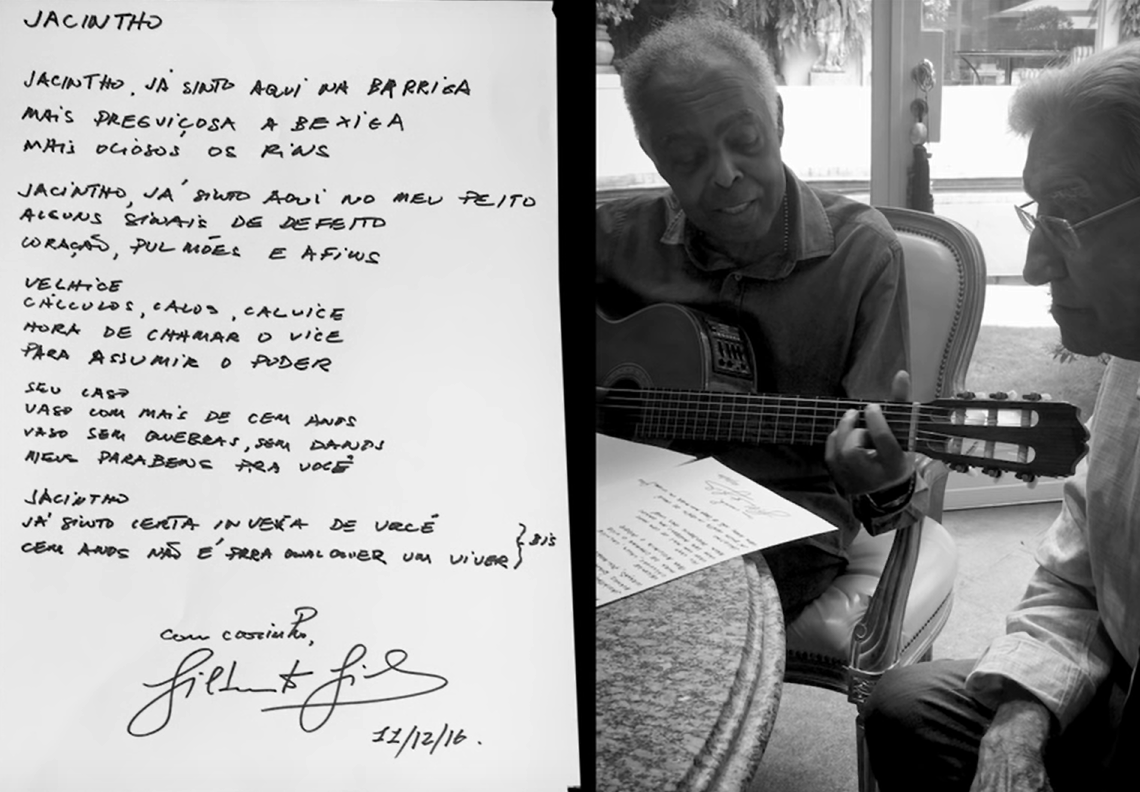 JACINTHO
JACINTHO, JÁ SINTO AQUI NA BARRIGA
MAIS PREGUIÇOSA A BEXIGA
MAIS OCIOSOS OS RINS
JACINTHO, JÁ SINTO AQUI NO MEU PEITO
ALGUNS SINAIS DE DEFEITO
CORAÇÃO, PULMÕES E AFINS
VELHICE
CÁLCULOS, CALOS, CALVICE
HORA DE CHAMAR O VICE
PARA ASSUMIR O PODER
SEU CASO
VASO COM MAIS DE CEM ANOS
VASO SEM QUEBRAS, SEM DANOS
MEUS PARABENS PRA VOCÊ
JACINTHO
JÁ SINTO CERTA INVEJA DE VOCÊ
CEM ANOS NÃO É PARA QUALQUER UM VIVER } BIS
com carinho,
Gilberto Gil
11/12/16.